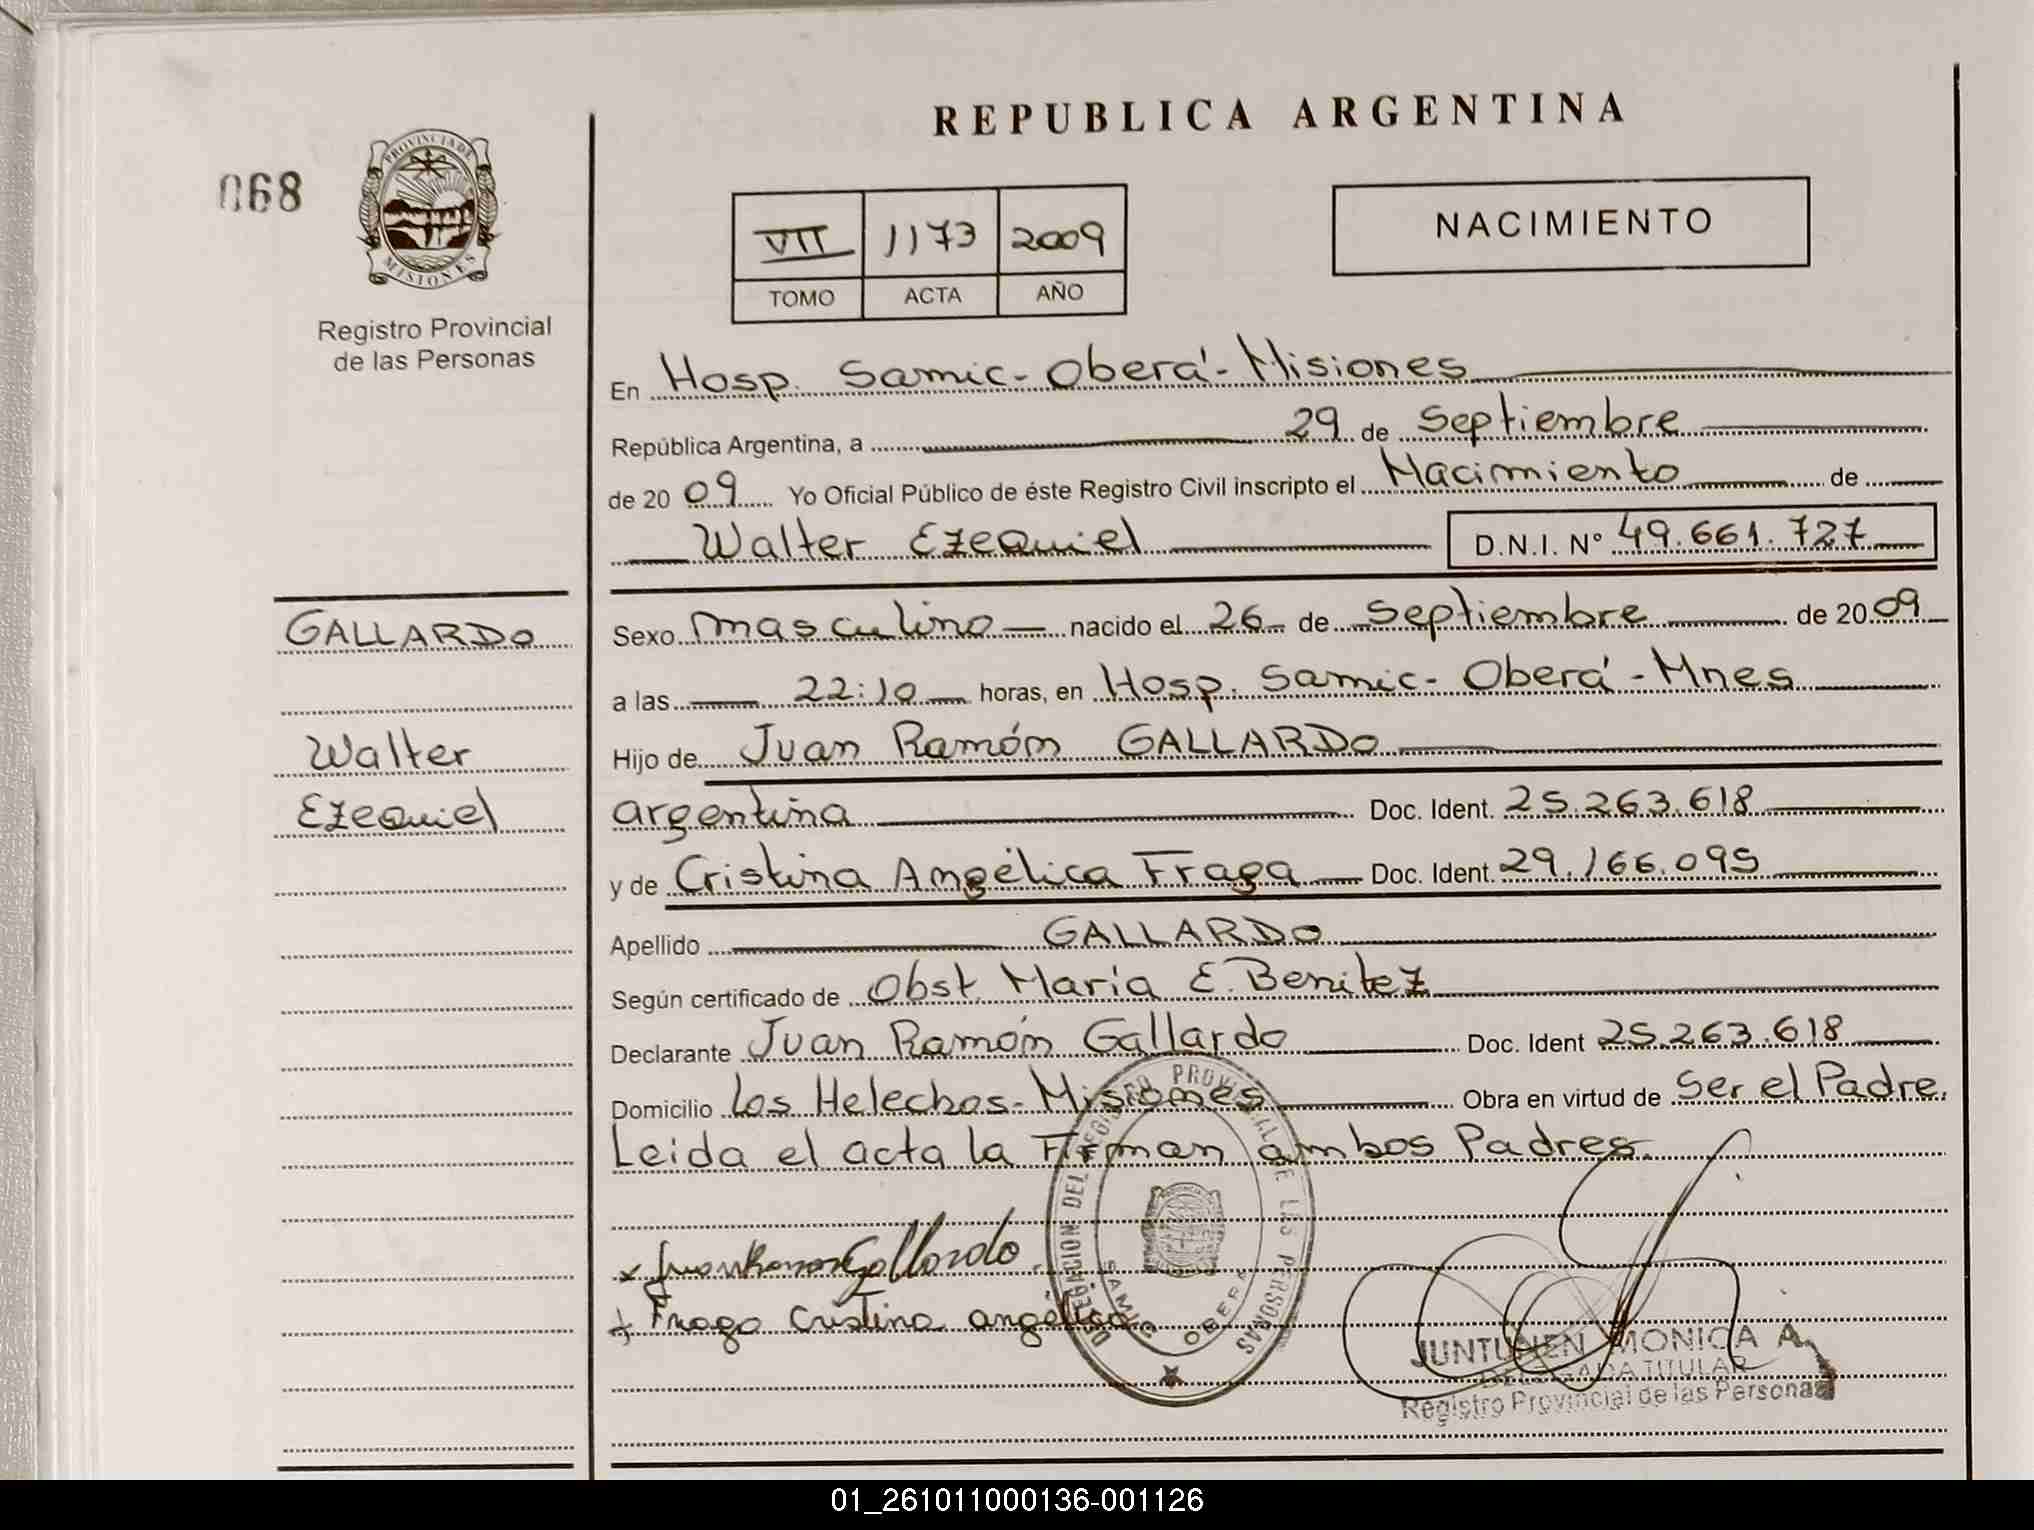 REPUBLICA ARGENTINA
068
PROVINCIA DE
MISIONES
Registro Provincial
de las Personas
VII 1173 2009
TOMO ACTA AÑO
NACIMIENTO
En Hosp. Samic - Oberá - Misiones
República Argentina, a 29 de Septiembre
de 2009 Yo Oficial Público de éste Registro Civil inscripto el Nacimiento de
Walter Ezequiel D.N.I. Nº 49.661.727
GALLARDO
Walter
Ezequiel
Sexo masculino nacido el 26 de Septiembre de 2009
a las 22:10 horas, en Hosp. Samic - Oberá - Mnes
Hijo de Juan Ramón GALLARDO
argentina Doc. Ident. 25.263.618
y de Cristina Angélica Fraga Doc. Ident. 29.166.095
Apellido GALLARDO
Según certificado de Obst. María E. Benitez
Declarante Juan Ramón Gallardo Doc. Ident 25.263.618
Domicilio Los Helechos - Misiones Obra en virtud de Ser el Padre.
Leida el acta la Firman ambos Padres.
x Juan Ramon Gallardo
x Fraga Cristina angélica
DELEGACION DEL REGISTRO PROVINCIAL DE LAS PERSONAS
SAMIC OBERA
JUNTUNEN MONICA A.
DELEGADA TITULAR
Registro Provincial de las Personas
01_261011000136-001126